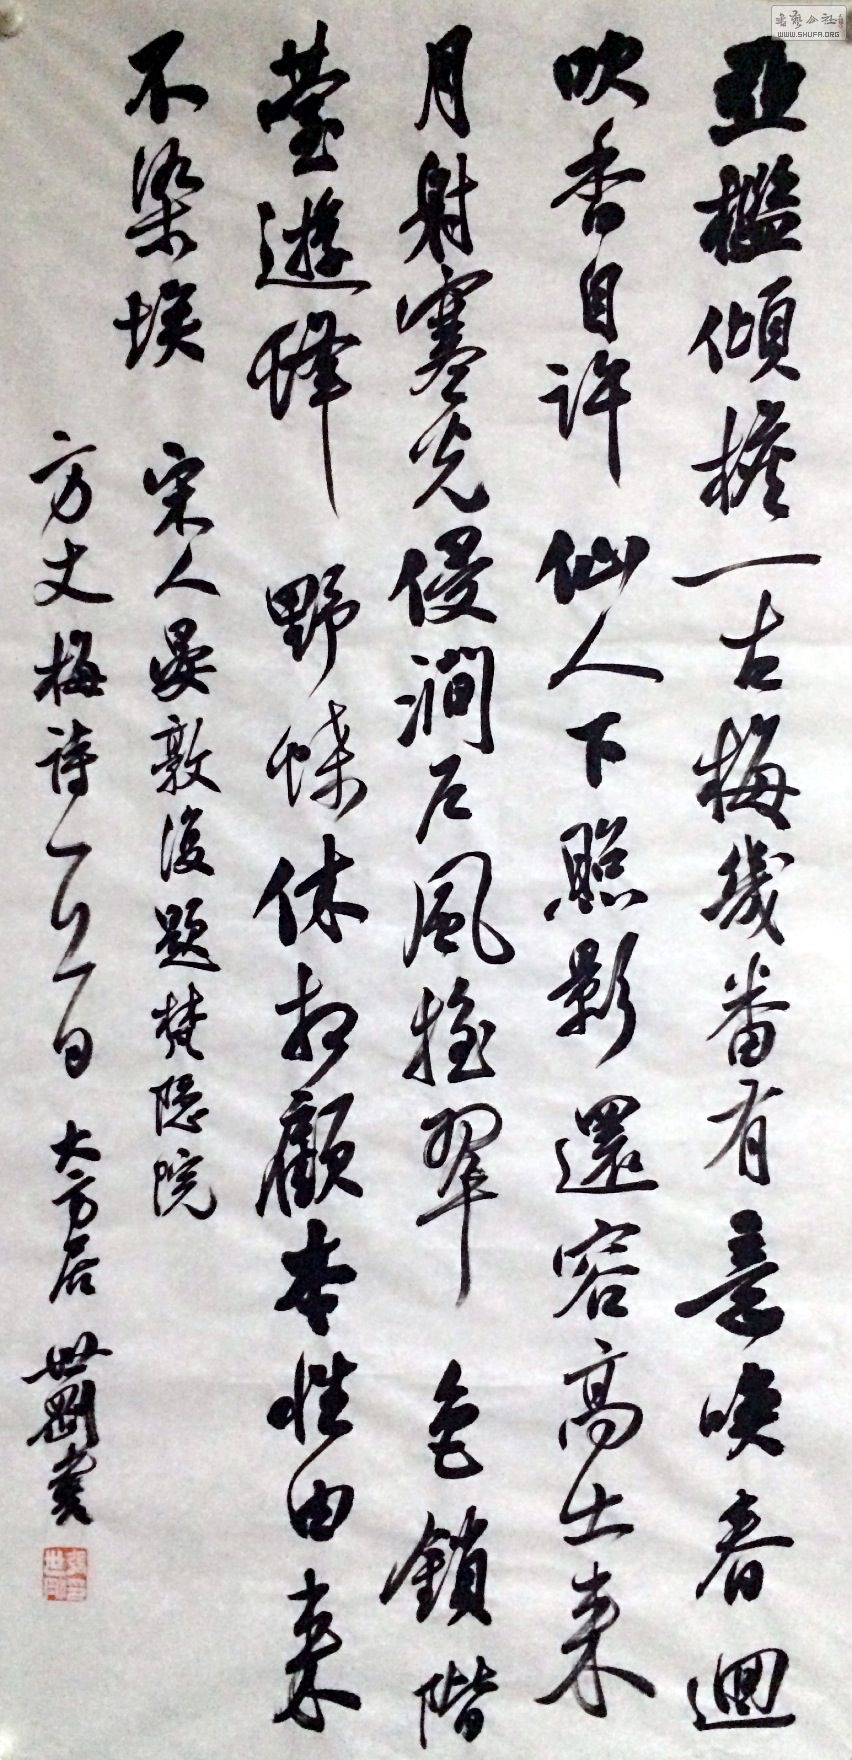 亚檻傾檐一古梅幾番有意喚春迴
吹香自許仙人下照影還容高士来
月射寒光侵澗户風摇翠色鎖階
薹遊蜂野蝶休相顧本性由来
不染埃
宋人晏敦復題梵隐院
方丈梅詩一八一日大方居世剛書
張世剛印
书艺公社
WWW.SHUFA.ORG